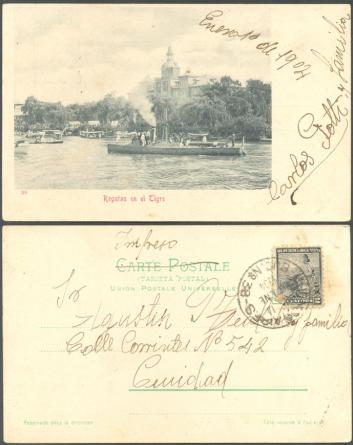 Enero 1º de 1904
Carlos Gotte y familia
Regatas en el Tigre
Impreso
CARTE POSTALE
(TARJETA POSTAL)
UNION POSTALE UNIVERSELLE
Sr
Agustin y familia
Calle Corrientes Nº 542
Ciudad
Reservado para la direccion